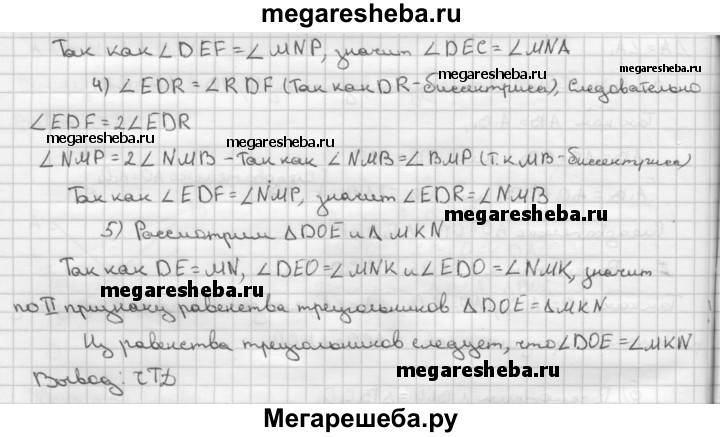 megaresheba.ru
Так как ∠DEF = ∠MNP, значит ∠DEC = ∠MNA
megaresheba.ru
megaresheba.ru
4) ∠EDR = ∠RDF (Так как DR - биссектриса), Следовательно
∠EDF = 2∠EDR
megaresheba.ru
megaresheba.ru
∠NMP = 2∠NMB - Так как ∠NMB = ∠BMP (т.к MB - биссектриса)
Так как ∠EDF = ∠NMP, значит ∠EDR = ∠NMB
megaresheba.ru
5) Рассмотрим ΔDOE и Δ MKN
Так как DE = MN, ∠DEO = ∠MNK и ∠EDO = ∠NMK, значит
megaresheba.ru
по II признаку равенства треугольников ΔDOE = ΔMKN
Из равенства треугольников следует, что ∠DOE = ∠MKN
megaresheba.ru
Вывод: чТД
Мегарешеба.ру